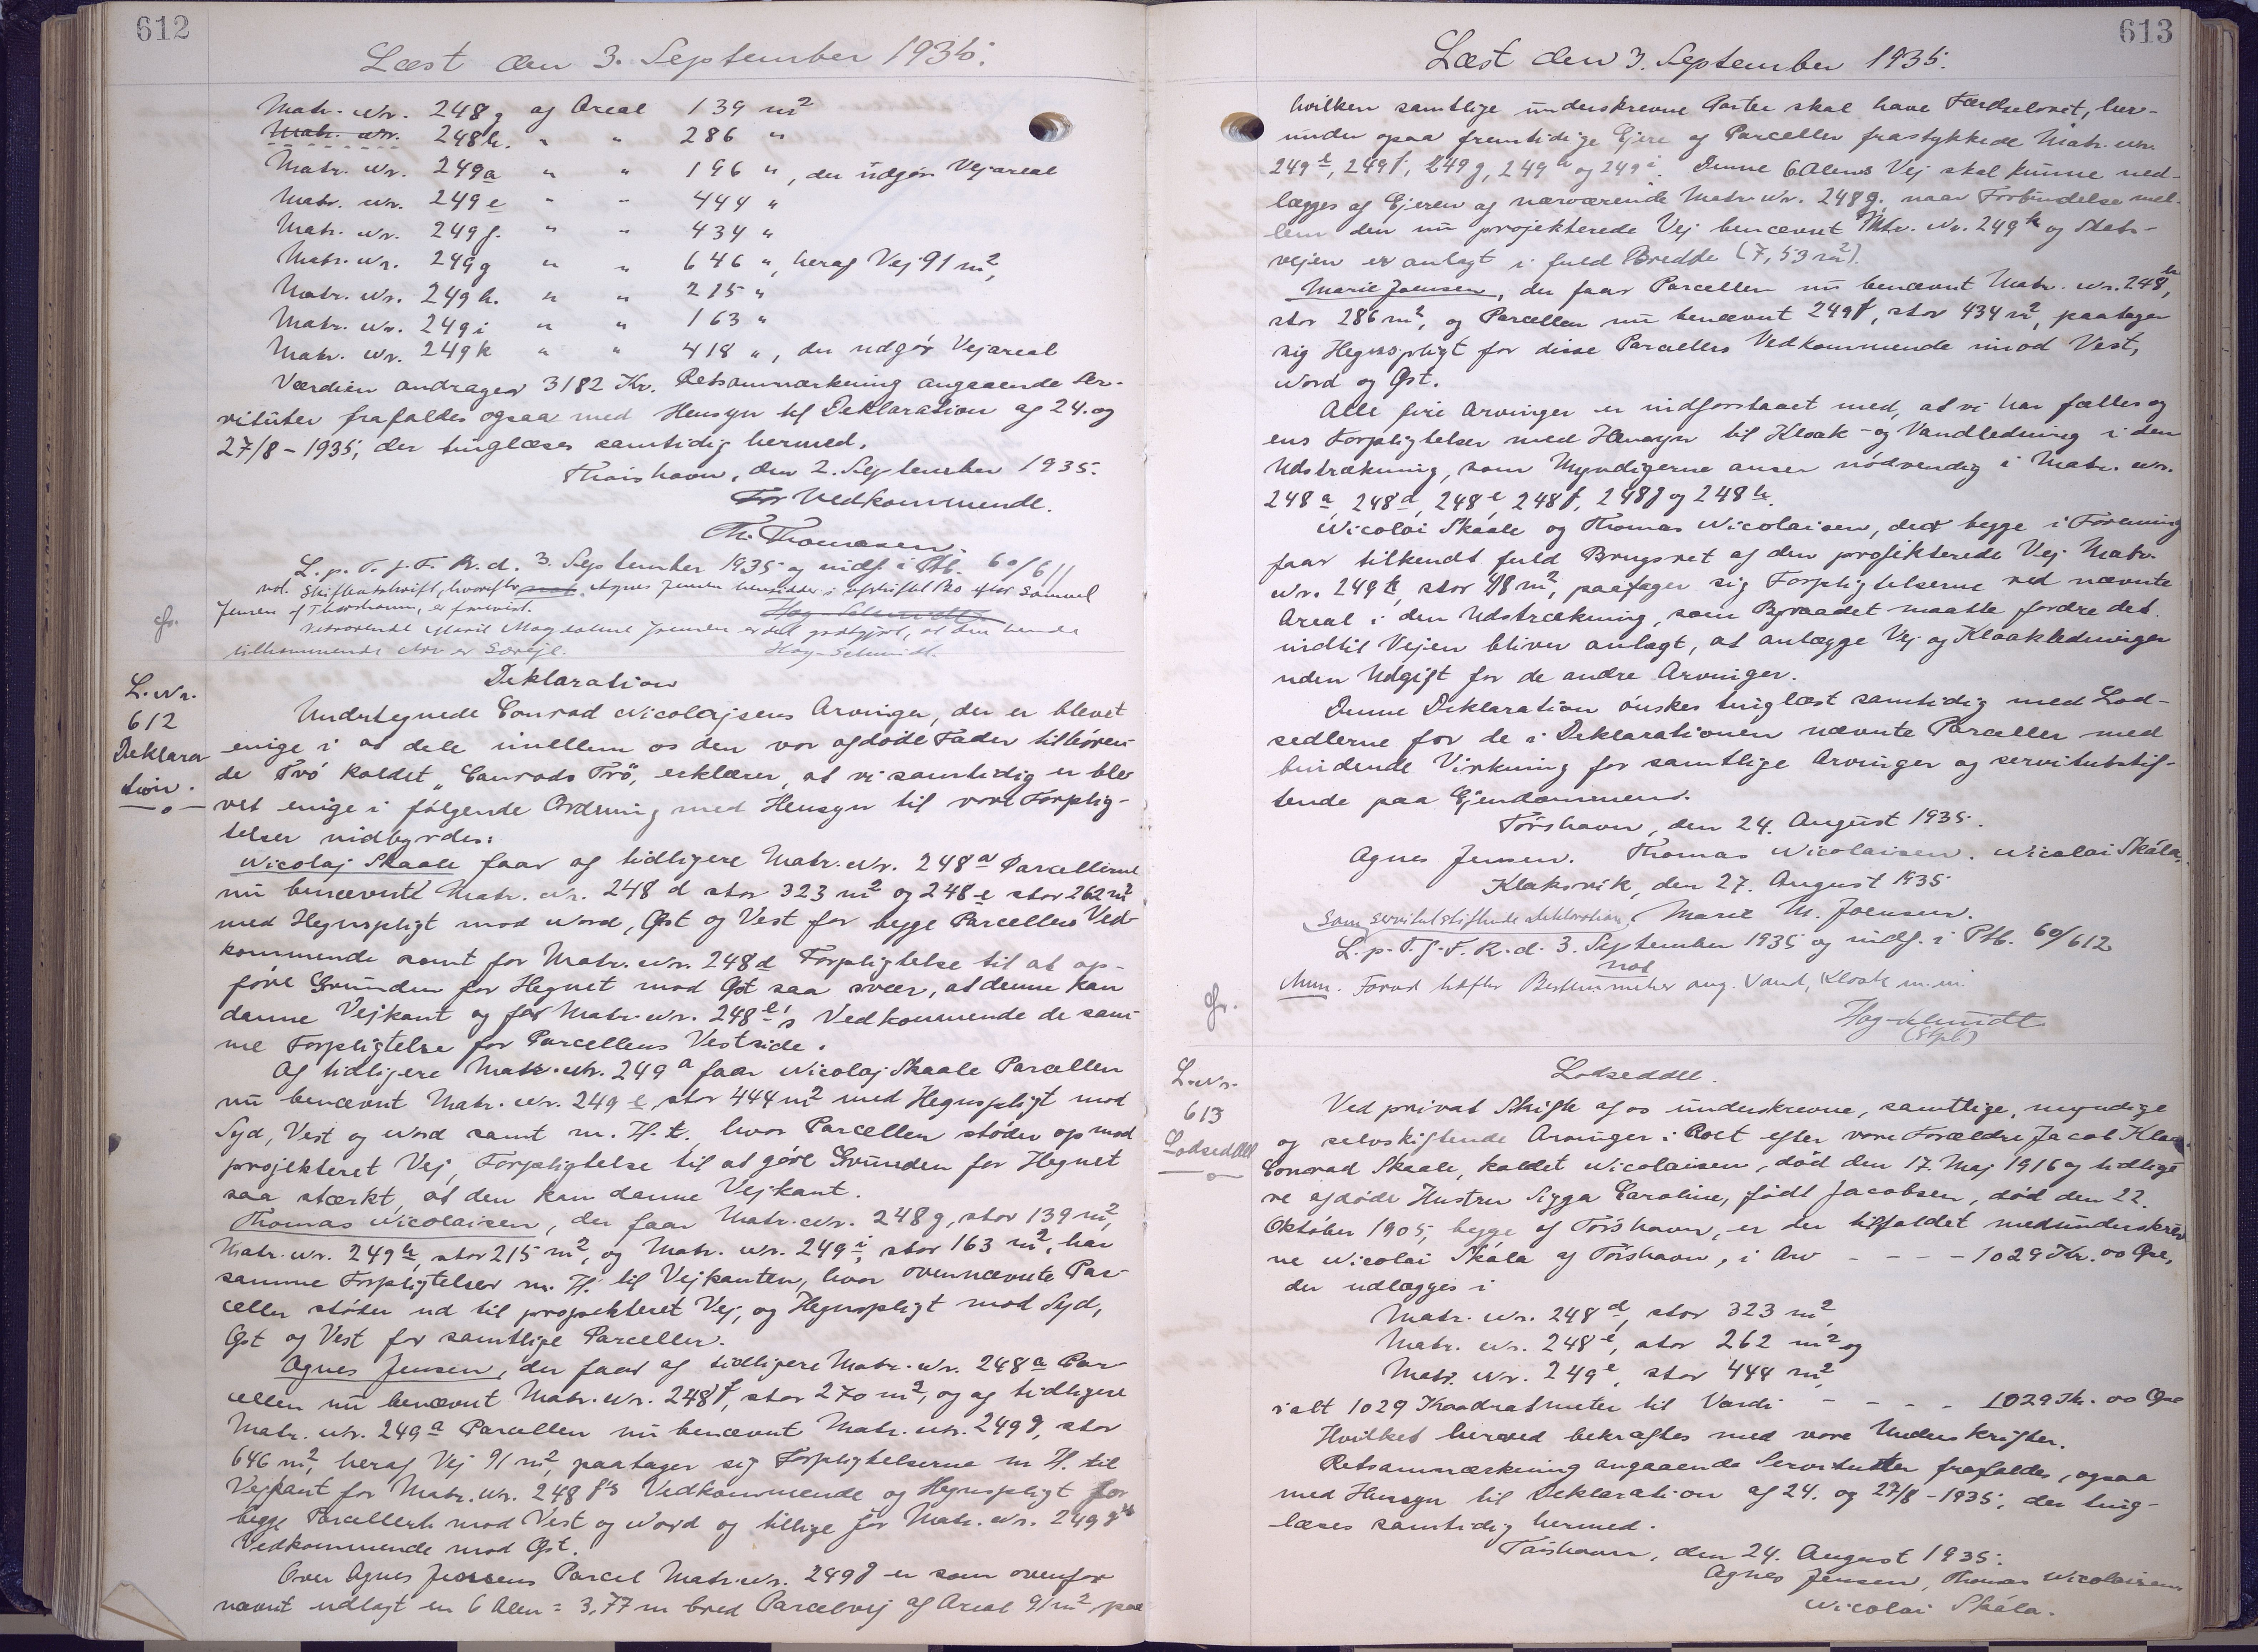 612
Læst den 3. September 1935.
Matr. Nr. 248g af Areal 139 m²
Matr. Nr. 248h. " " 286 "
Matr. Nr. 249a " " 196 ", der udgør Vejareal
Matr. Nr. 249e " " 444 "
Matr. Nr. 249f. " " 434 "
Matr. Nr. 249g " " 646 ", heraf Vej 91 m²,
Matr. Nr. 249h. " " 215 "
Matr. Nr. 249i " " 163 "
Matr. Nr. 249k " " 418 ", der udgør Vejareal
Værdien andrager 3182 Kr. Retsanmærkning angaaende Ser-
vituter frafaldes ogsaa med Hensyn til Deklaration af 24. og
27/8 - 1935, der tinglæses samtidig hermed.
Thorshavn, den 2. September 1935.
For Vedkommende.
Th. Thomasen.
L. p. T. f. F. R. d. 3. September 1935 og indf. i Ptb. 60/611
not. Skifteudskrift, hvorefter Agnes Jensen hensidder i uskiftet Bo efter Samuel
Jensen af Thorshavn, er forevist.
Vedrørende Marie Magdalene Joensen er det godtgjort, at den hende
tilkommende Arv er Særeje. Høg-Schmidt.
L. Nr.
612
Deklara
tion.
Deklaration
Undertegnede Conrad Nicolajsens Arvinger, der er blevet
enige i at dele imellem os den vor afdøde Fader tilhøren-
de Trø kaldet "Conrads Trø", erklærer, at vi samtidig er ble-
vet enige i følgende Ordning med Hensyn til vore Forplig-
telser indbyrdes:
Nicolaj Skaale faar af tidligere Matr. Nr. 248a Parcellerne
nu benævnt Matr. Nr. 248d stor 323 m² og 248e stor 262 m²
med Hegnspligt mod Nord, Øst og Vest for begge Parcellers Ved-
kommende samt for Matr. Nr. 248d Forpligtelse til at op-
føre Grunden for Hegnet mod Øst saa svær, at denne kan
danne Vejkant og for Matr. Nr. 248e's Vedkommende de sam-
me Forpligtelse for Parcellens Vestside.
Af tidligere Matr. Nr. 249a faar Nicolaj Skaale Parcellen
nu benævnt Matr. Nr. 249e, stor 444 m² med Hegnspligt mod
Syd, Vest og Nord samt m. H. t. hvor Parcellen støder op mod
projekteret Vej, Forpligtelse til at gøre Grunden for Hegnet
saa stærkt, at den kan danne Vejkant.
Thomas Nicolaisen, der faar Matr. Nr. 248g, stor 139 m²,
Matr. Nr. 249h, stor 215 m², og Matr. Nr. 249i, stor 163 m², har
samme Forpligtelser m. H. til Vejkanten, hvor ovennævnte Par-
celler støder ud til projekteret Vej, og Hegnspligt mod Syd,
Øst og Vest for samtlige Parceller.
Agnes Jensen, der faar af tidligere Matr. Nr. 248a Par-
cellen nu benævnt Matr. Nr. 248f, stor 270 m², og af tidligere
Matr. Nr. 249a Parcellen nu benævnt Matr. Nr. 249g, stor
646 m², heraf Vej 91 m², paatager sig Forpligtelserne m H. til
Vejkant for Matr. Nr. 248f's Vedkommende og Hegnspligt for
begge Parcellerne mod Vest og Nord og tillige for Matr. Nr. 249g's
Vedkommende mod Øst.
Over Agnes Jensens Parcel Matr. Nr. 249g er som ovenfor
nævnt udlagt en 6 Alen = 3,77 m bred Parcelvej af Areal 91 m², paa
613
Læst den 3. September 1935.
hvilken samtlige underskrevne Parter skal have Færdselsret, her-
under ogsaa fremtidige Ejere af Parceller frastykkede Matr. Nr.
249e, 249f, 249g, 249h og 249i. Denne 6 Alens Vej skal kunne ned-
lægges af Ejeren af nærværende Matr. Nr. 248g, naar Forbindelse mel-
lem den nu projekterede Vej benævnt Mtr. Nr. 249k og Stats-
vejen er anlagt i fuld Bredde (7,53 m²).
Marie Joensen, der faar Parcellen nu benævnt Matr. Nr. 248h,
stor 286 m², og Parcellen nu benævnt 249f, stor 434 m², paatager
sig Hegnspligt for disse Parcellers Vedkommende imod Vest,
Nord og Øst.
Alle fire Arvinger er indforstaaet med, at vi har fælles og
ens Forpligtelser med Hensyn til Kloak- og Vandledning i den
Udstrækning, som Myndigerne anser nødvendig i Matr. Nr.
248a, 248d, 248e, 248f, 248g og 248h.
Nicolai Skaale og Thomas Nicolaisen, der begge i Forening
faar tilkendt fuld Brugsret af den projekterede Vej Matr.
Nr. 249k, stor 418 m², paatager sig Forpligtelserne ved nævnte
Areal i den Udstrækning, som Byraadet maatte fordre det
indtil Vejen bliver anlagt, at anlægge Vej og Kloakledninger
uden Udgift for de andre Arvinger.
Denne Deklaration ønskes tinglæst samtidig med Lod-
sedlerne for de i Deklarationen nævnte Parceller med
bindende Virkning for samtlige Arvinger og servitutstif-
tende paa Ejendommen.
Tórshavn, den 24. August 1935.
Agnes Jensen. Thomas Nicolaisen. Nicolai Skála.
Klaksvik, den 27. August 1935
Marie M. Joensen.
Som servitutstiftende Deklaration
L. p. T. f. F. R. d. 3. September 1935 og indf. i Ptb. 60/612
not
Anm. Forud hæfter Bestemmelser ang. Vand, Kloak m.m.
Høg-Schmidt
L. Nr.
613
Lodseddel
Lodseddel.
Ved privat Skifte af os underskrevne, samtlige, myndige
og selvskiftende Arvinger i Boet efter vore Forældre Jacob Klæ
Conrad Skaale, kaldet Nicolaisen, død den 17. Maj 1916 og tidlige
re afdøde Hustru Sigga Caroline, født Jacobsen, død den 22.
Oktober 1905, begge af Tórshavn, er der tilfaldet medunderskrev
ne Nicolai Skála af Tórshavn, i Arv - - - - 1029 Kr. 00 Øre,
der udlægges i
Matr. Nr. 248d, stor 323 m²,
Matr. Nr. 248e, stor 262 m² og
Matr. Nr. 249e, stor 444 m²,
ialt 1029 Kvadratmeter til Værdi - - - - 1029 Kr. 00 Øre
Hvilket herved bekræftes med vore Underskrifter.
Retsanmærkning angaaende Servitutter frafaldes, ogsaa
med Hensyn til Deklaration af 24. og 27/8 - 1935, der ting-
læses samtidig hermed.
Tórshavn, den 24. August 1935.
Agnes Jensen, Thomas Nicolaisen
Nicolai Skála.